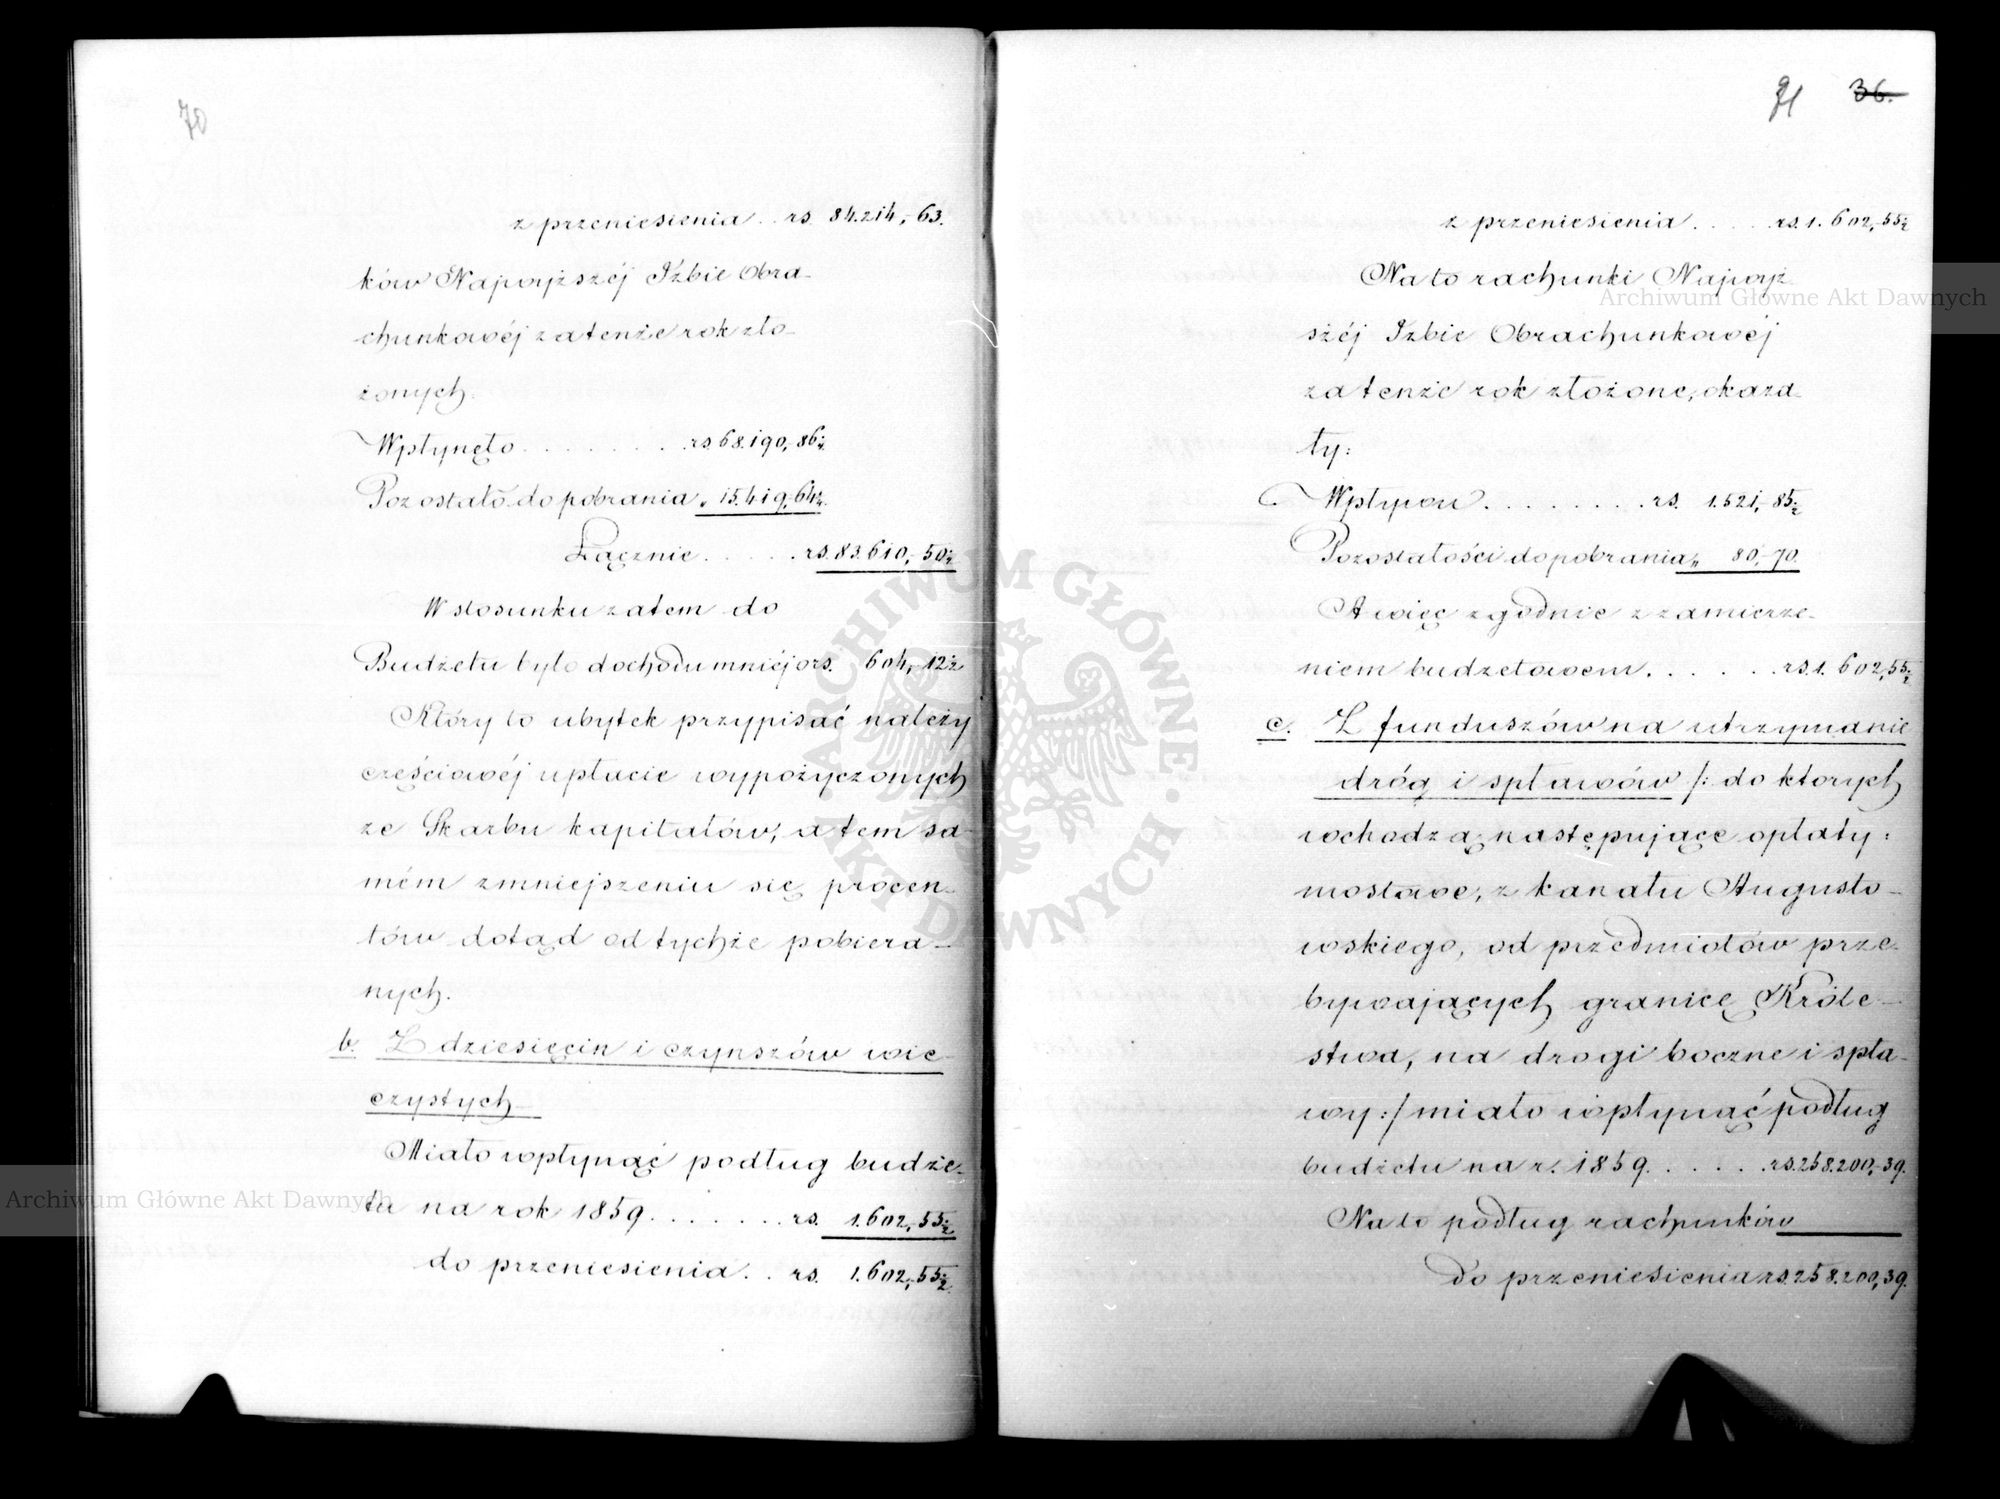 70
z przeniesienia .. rs. 84.214,-63.
ków Najwyższéj Izbie Obra-
chunkowéj za tenże rok zło-
żonych.
Wpłynęło . . . . . . . . rs. 68.190,-86½
Pozostało do pobrania „ 15.419,-64½.
Łącznie . . . . . rs. 83.610,-50½
W stosunku zatem do
Budżetu było dochodu mniéj o rs. 604,-12½
Który to ubytek przypisać należy
cześciowéj upłacie wypożyczonych
ze Skarbu kapitałów, a tem sa-
mém zmniejszeniu się procen-
tów dotąd od tychże pobiera-
nych.
b. Z dziesięcin i czynszów wie-
czystych
Miało wpłynąć podług budże-
tu na rok 1859. . . . . . . rs. 1.602,-55½
do przeniesienia. . rs. 1.602,-55½
71 36.
z przeniesienia. . . . . rs. 1.602,-55½
Na to rachunki Najwyż
széj Izbie Obrachunkowéj
za tenże rok złożone, okaza-
ły:
Wpływu. . . . . . . . rs. 1.521,-85½
Pozostałości do pobrania „ 80,-70.
A więc zgodnie z zamierze-
niem budżetowem. . . . . . rs. 1.602,55½
c. Z funduszów na utrzymanie
dróg i spławów /: do ktorych
wchodzą następujące opłaty:
mostowe, z kanału Augusto-
wskiego, od przedmiotów prze-
bywających granicę Króle-
stwa, na drogi boczne i spła-
wy :/ miało wpłynąć podług
budżetu na r. 1859. . . . . . rs. 258.200,-39.
Na to podług rachunków
Do przeniesienia rs. 258.200,39.
Archiwum Główne Akt Dawnych
Archiwum Główne Akt Dawnych
ARCHIWUM GŁÓWNE · AKT DAWNYCH ·